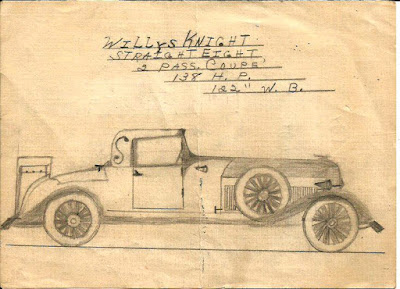 WILLYS KNIGHT
STRAIGHT EIGHT
2 PASS. COUPE
138 H. P.
122" W. B.